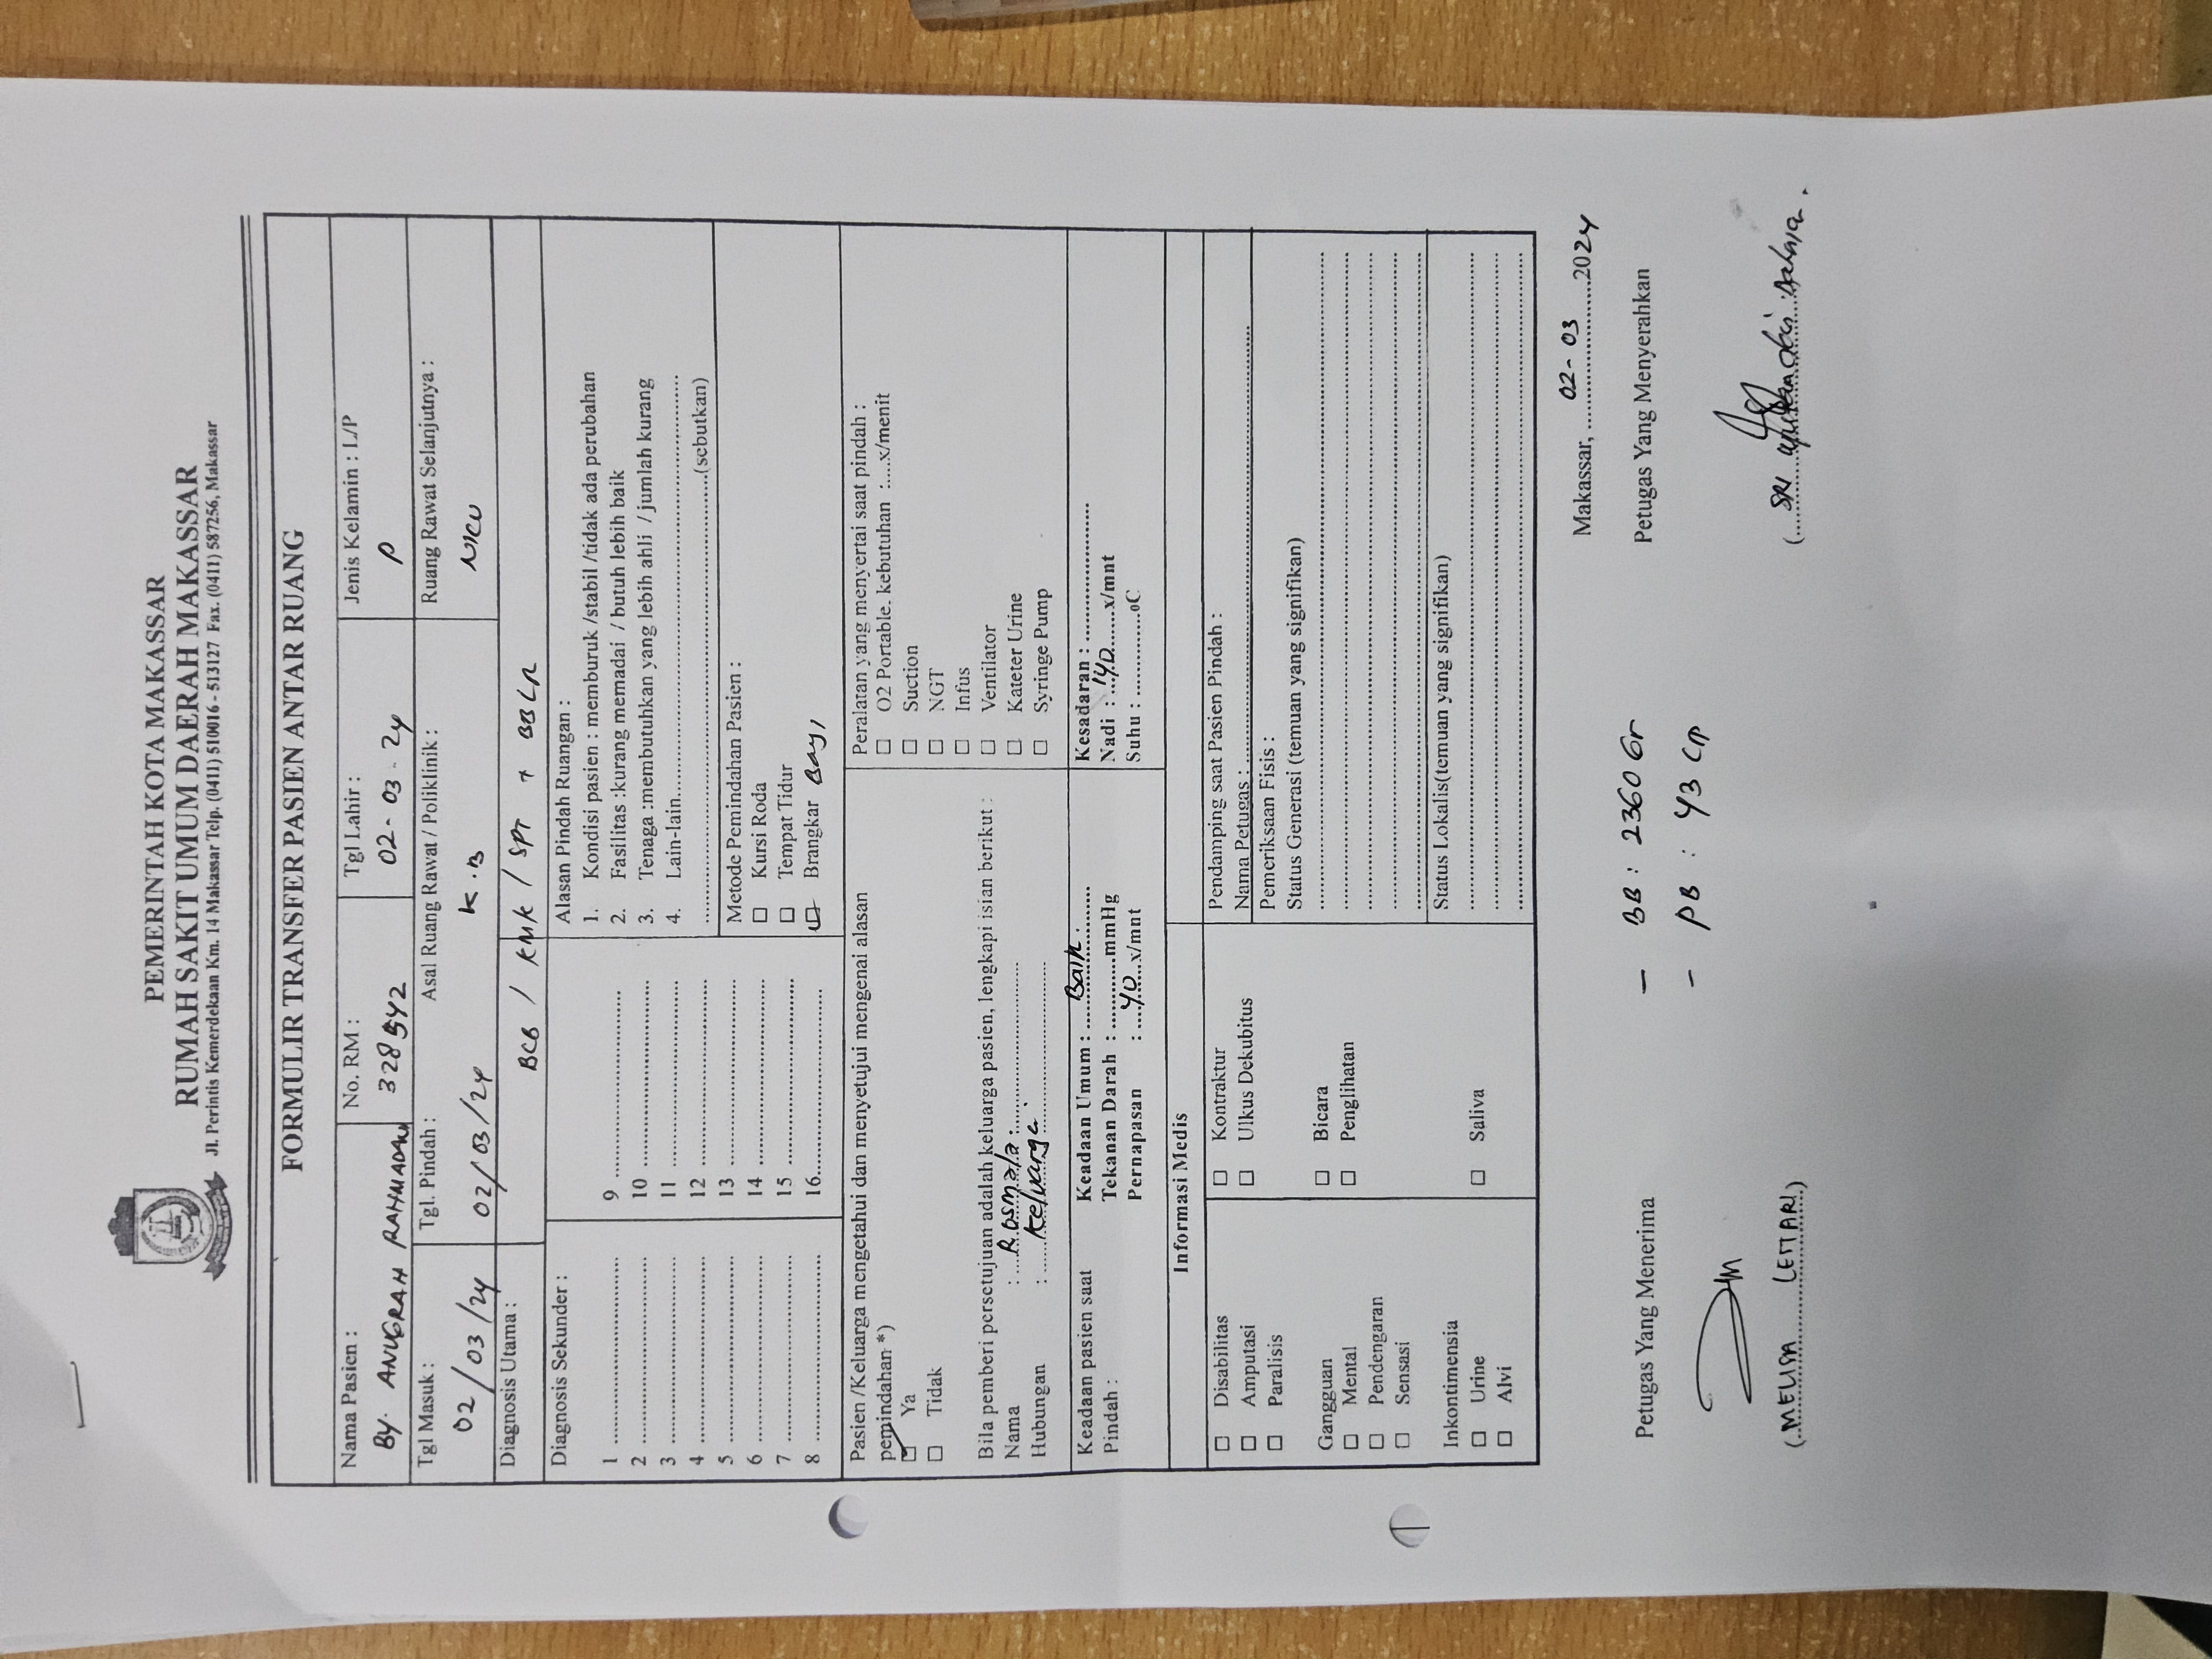 PEMERINTAH KOTA MAKASSAR
RUMAH SAKIT UMUM DAERAH MAKASSAR
Jl. Perintis Kemerdekaan Km. 14 Makassar Telp. (0411) 510016 - 513127 Fax. (0411) 587256, Makassar
FORMULIR TRANSFER PASIEN ANTAR RUANG
Nama Pasien : No. RM : Tgl Lahir : Jenis Kelamin : L/P
BY. ANUGRAH RAHMADANI 328542 02-03-24 P
Tgl Masuk : Tgl. Pindah : Asal Ruang Rawat / Poliklinik : Ruang Rawat Selanjutnya :
02/03/24 02/03/24 K.B NICU
Diagnosis Utama : BCB / KMK / SPT + BBLR
Diagnosis Sekunder :
1 ........................ 9 ........................
2 ........................ 10 ........................
3 ........................ 11 ........................
4 ........................ 12 ........................
5 ........................ 13 ........................
6 ........................ 14 ........................
7 ........................ 15 ........................
8 ........................ 16........................
Alasan Pindah Ruangan :
1. Kondisi pasien : memburuk /stabil /tidak ada perubahan
2. Fasilitas :kurang memadai / butuh lebih baik
3. Tenaga :membutuhkan yang lebih ahli / jumlah kurang
4. Lain-lain........................
........................(sebutkan)
Metode Pemindahan Pasien :
☐ Kursi Roda
☐ Tempat Tidur
☑ Brangkar Bayi
Pasien /Keluarga mengetahui dan menyetujui mengenai alasan
pemindahan *)
☑ Ya
☐ Tidak
Bila pemberi persetujuan adalah keluarga pasien, lengkapi isian berikut :
Nama : Rosmala
Hubungan : Keluarga
Peralatan yang menyertai saat pindah :
☐ O2 Portable. kebutuhan :....x/menit
☐ Suction
☐ NGT
☐ Infus
☐ Ventilator
☐ Kateter Urine
☐ Syringe Pump
Keadaan pasien saat
Pindah :
Keadaan Umum : Baik.
Tekanan Darah : ............mmHg
Pernapasan : 40 x/mnt
Kesadaran : ........................
Nadi : 140 x/mnt
Suhu : ..............oC
Informasi Medis
☐ Disabilitas ☐ Kontraktur
☐ Amputasi ☐ Ulkus Dekubitus
☐ Paralisis
Gangguan ☐ Bicara
☐ Mental ☐ Penglihatan
☐ Pendengaran
☐ Sensasi
Inkontimensia
☐ Urine ☐ Saliva
☐ Alvi
Pendamping saat Pasien Pindah :
Nama Petugas : ........................
Pemeriksaan Fisis :
Status Generasi (temuan yang signifikan)
Status Lokalis(temuan yang signifikan)
Makassar, 02-03 2024
Petugas Yang Menerima Petugas Yang Menyerahkan
- BB : 2360 Gr
- PB : 43 cm
(MELISA LESTARI) (SRI